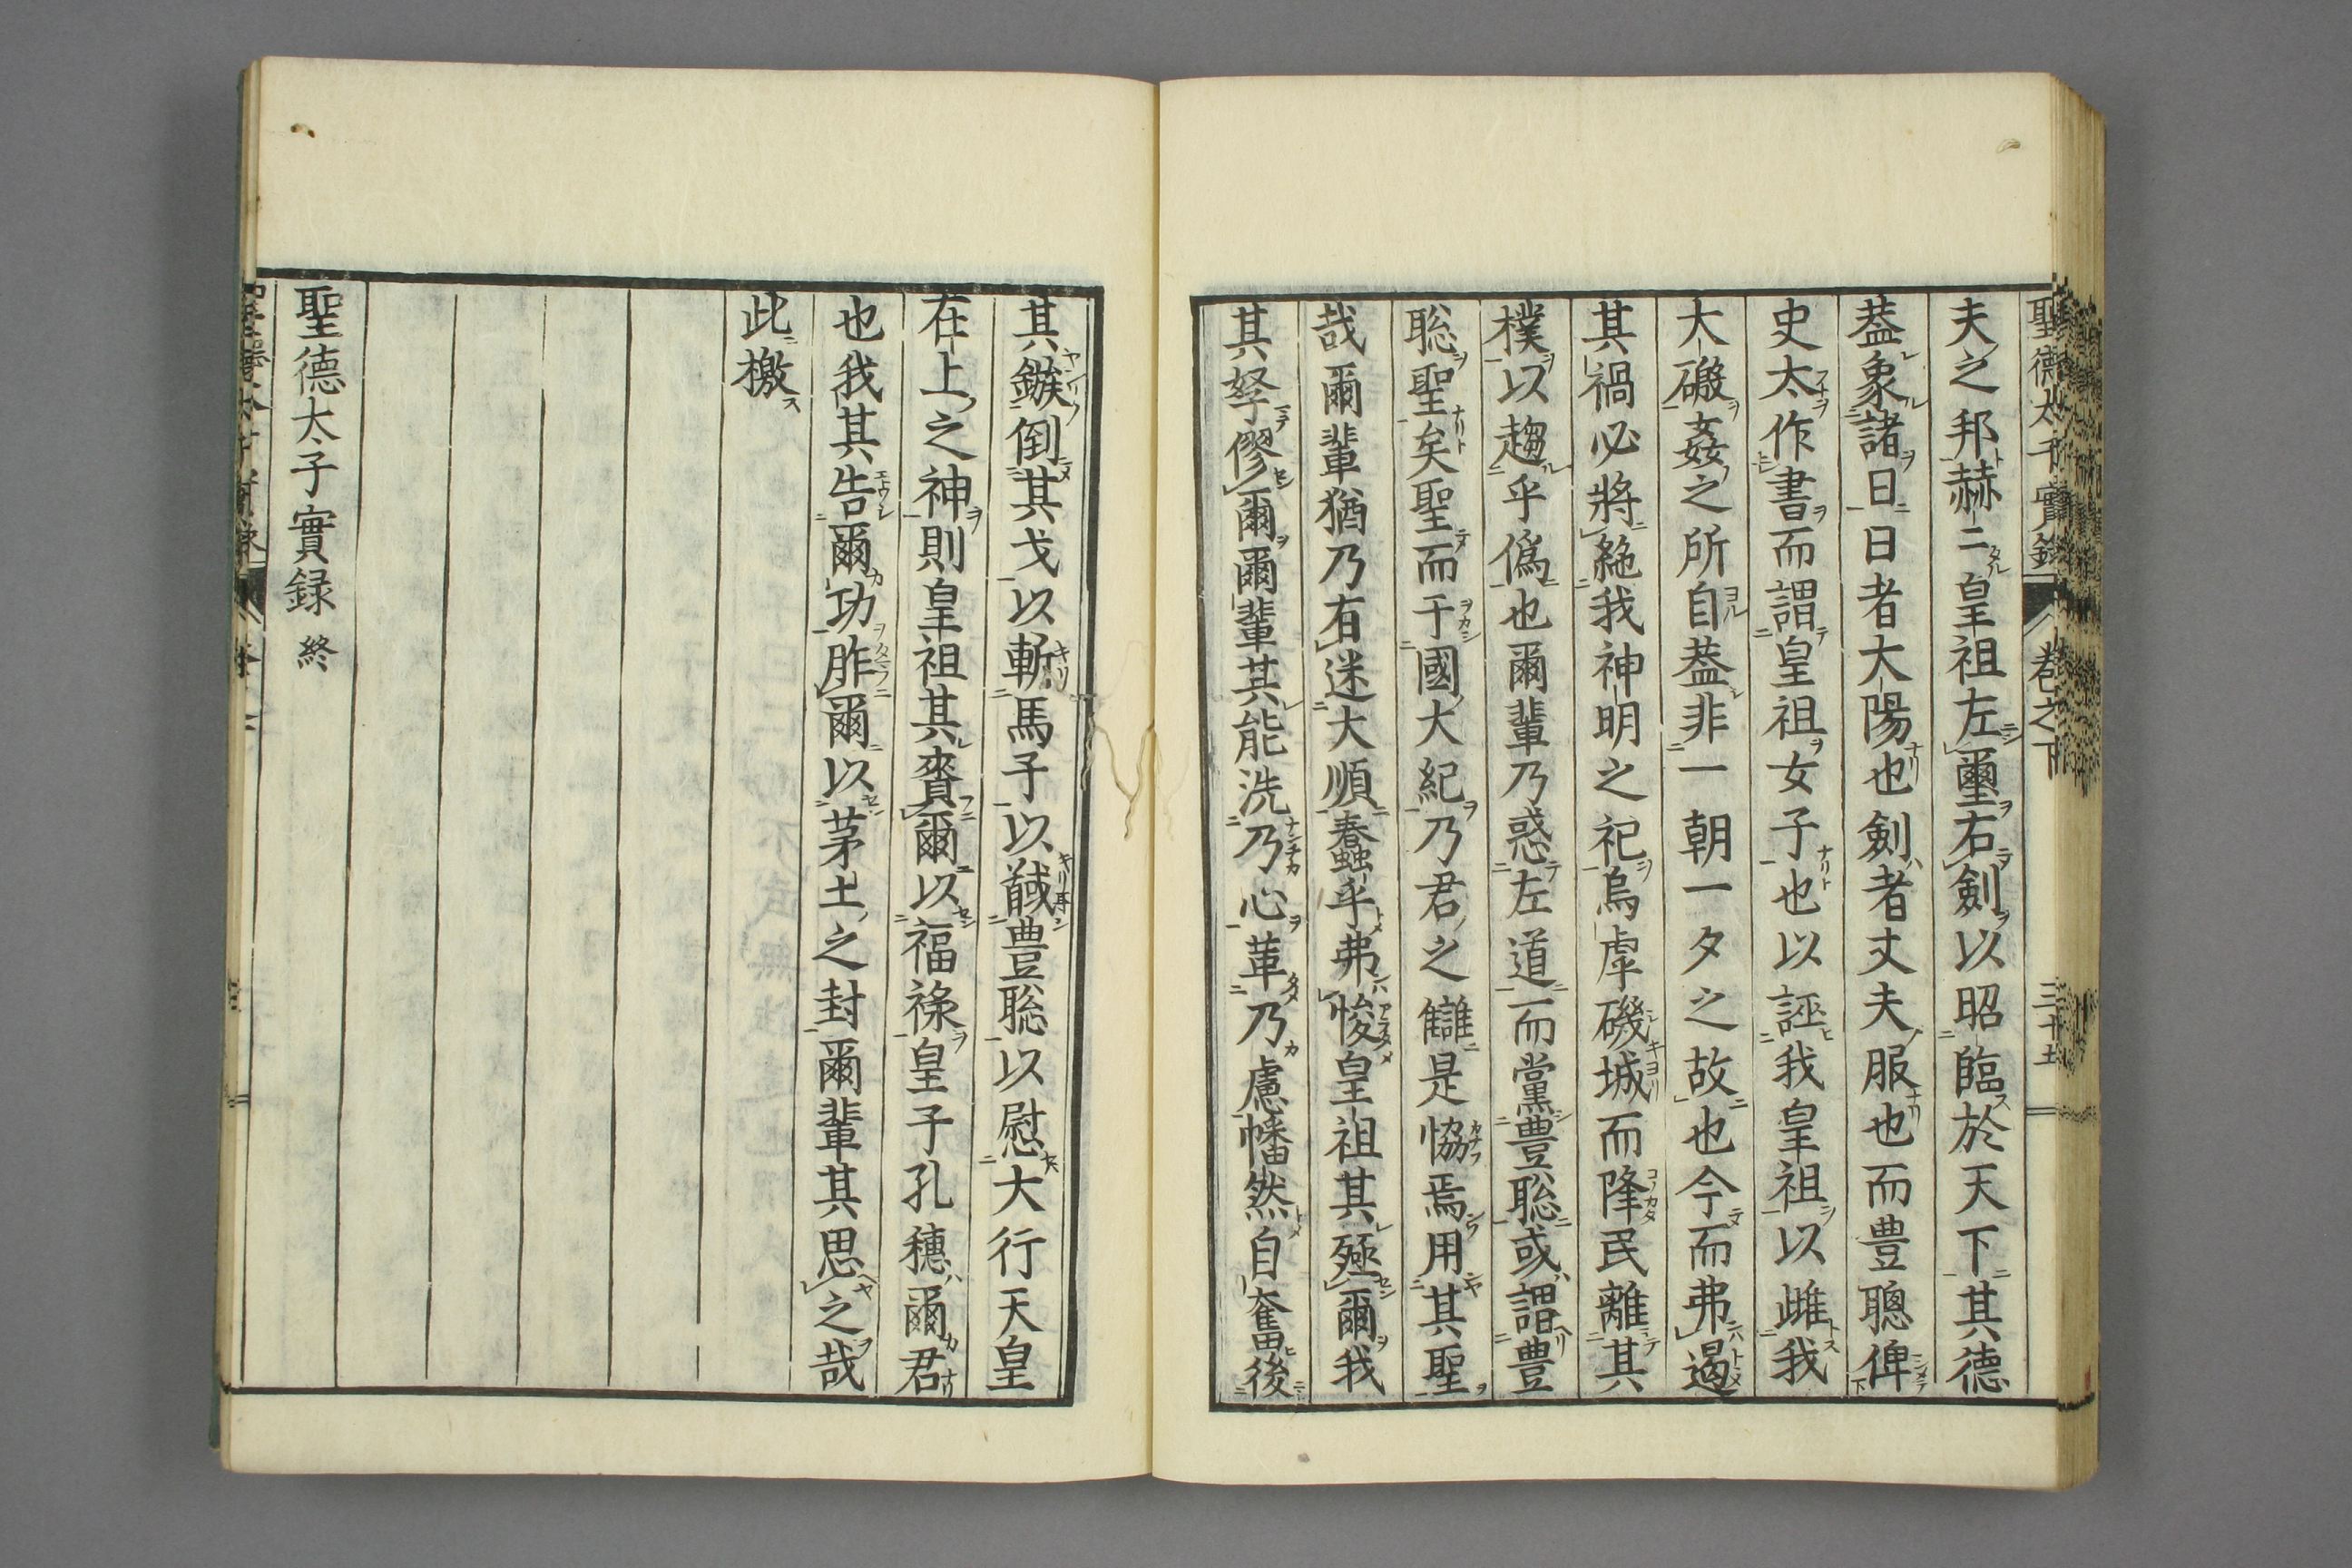 聖德太子實錄 卷之下 三十五
夫之邦赫二皇祖左璽右劍以昭臨於天下其德
葢象諸日日者大陽也劍者丈夫服也而豊聰俾
史太作書而謂皇祖女子也以誣我皇祖以雌我
大磤姦之所自葢非一朝一夕之故也今而弗遏
其禍必將絶我神明之祀烏虖磯城而降民離其
樸以趨乎僞也爾輩乃惑左道而黨豊聡或謂豊
聡聖矣聖而干國大紀乃君之讎是恊焉用其聖
哉爾輩猶乃有迷大順蠢乎弗悛皇祖其殛爾我
其孥僇爾爾輩其能洗乃心革乃慮幡然自奮後
其鏃倒其戈以斬馬子以馘豊聡以慰大行天皇
在上之神則皇祖其賚爾以福祿皇子孔穗爾君
也我其告爾功胙爾以茅土之封爾輩其思之哉
此檄
聖德太子實録 終